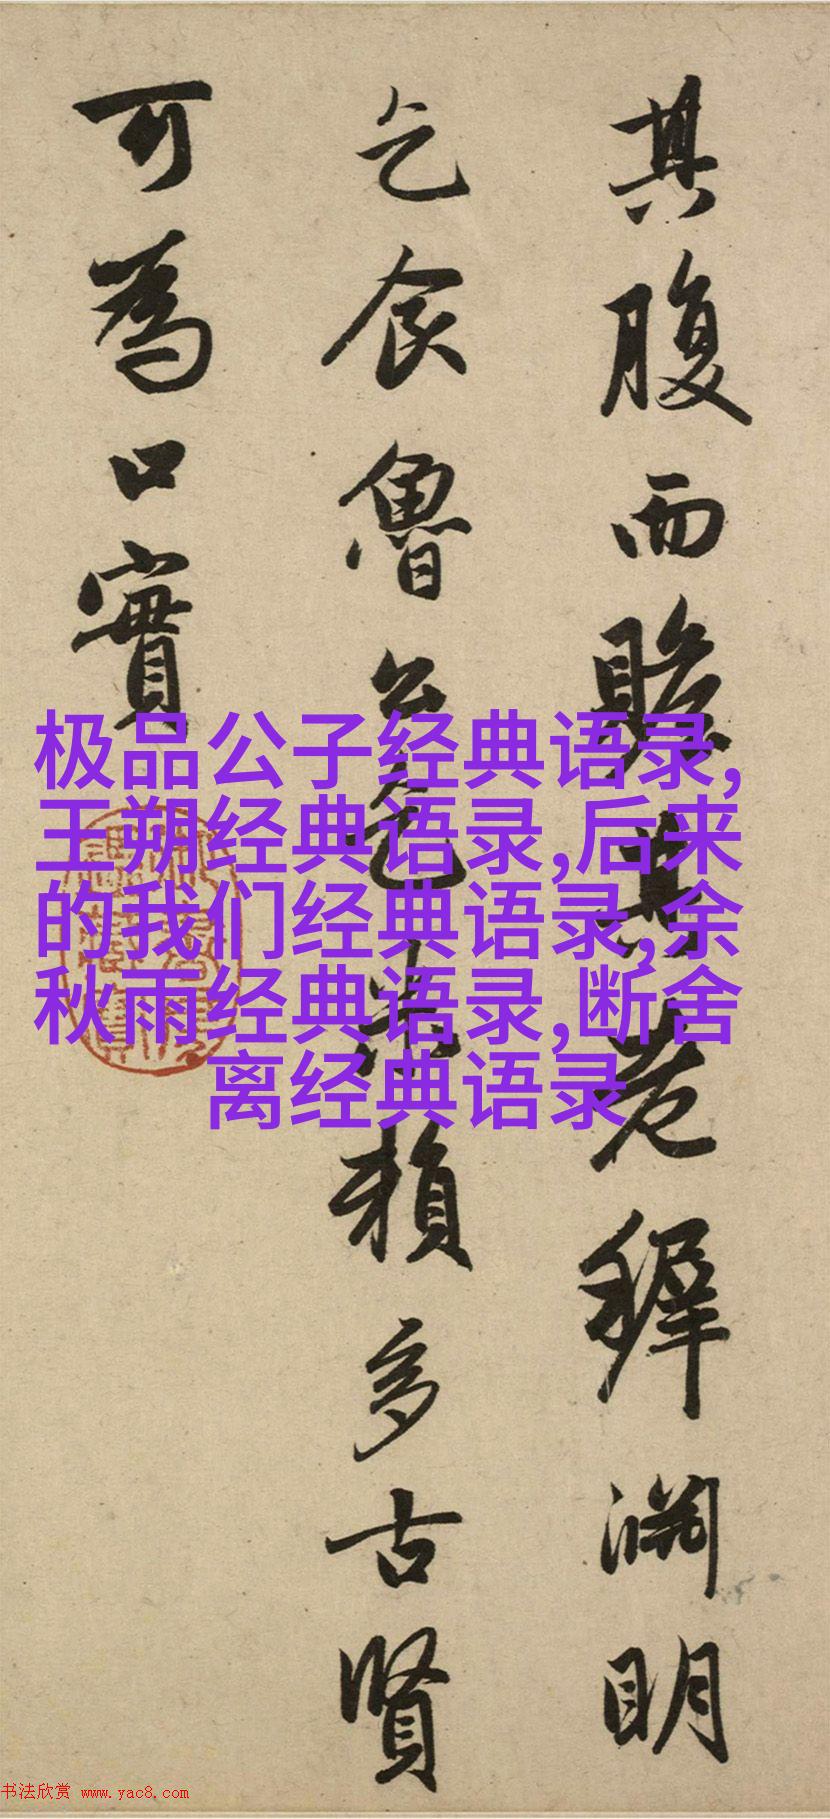 其腹而瞻其老穉淵明
乞食魯公乞米賴多古賢
可為口實
极品公子经典语录,
王朔经典语录,后来
的我们经典语录,余
秋雨经典语录,断舍
离经典语录
书法欣赏 www.yac8.com